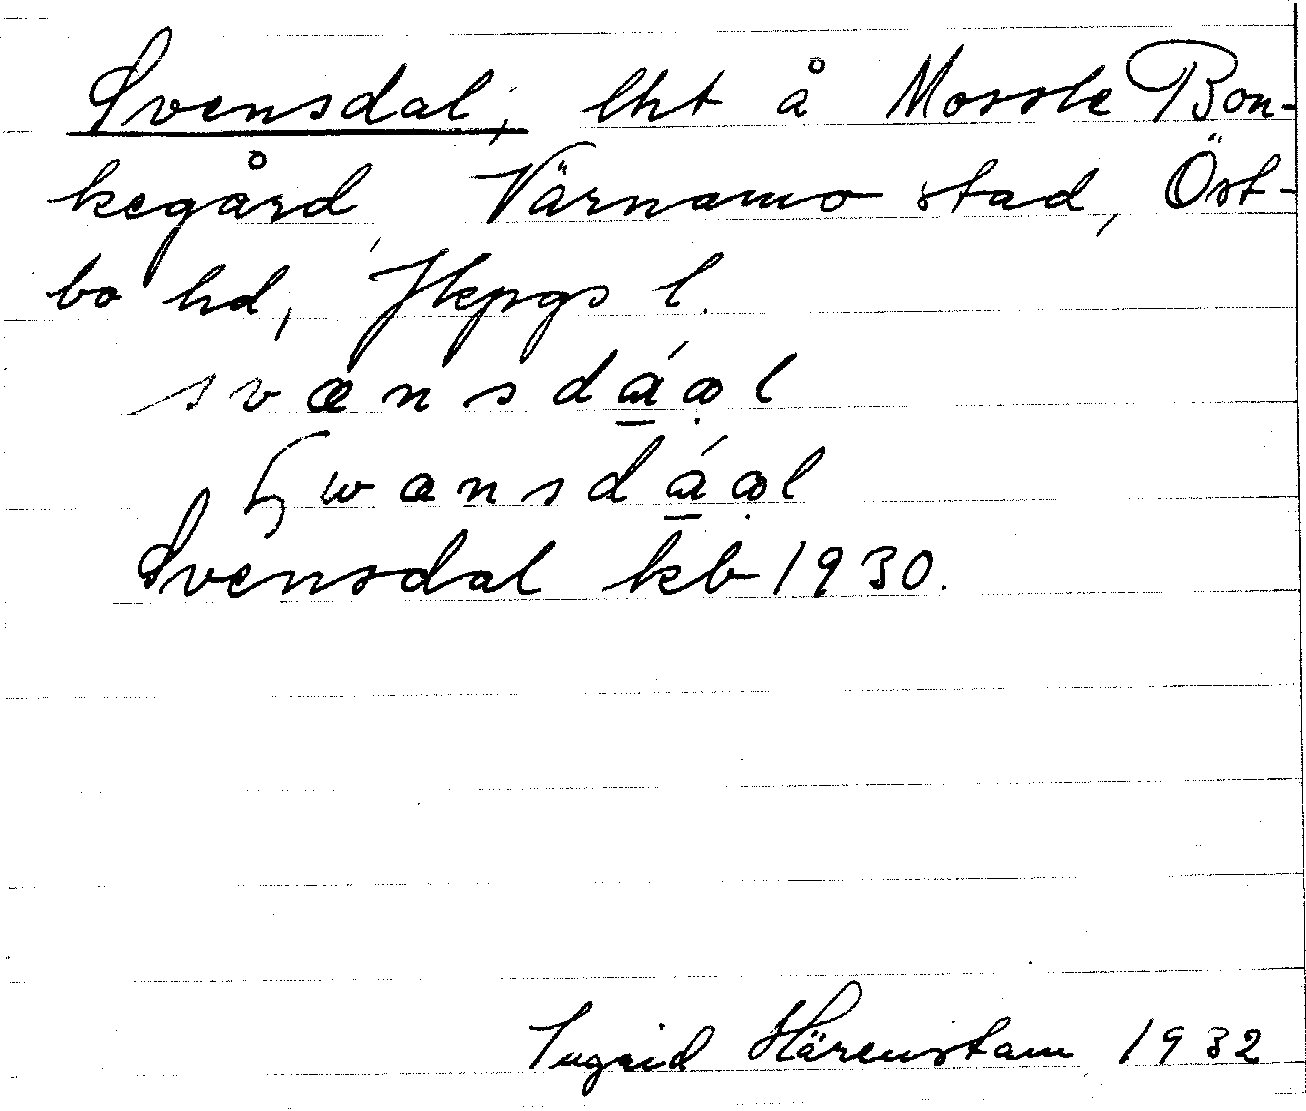 Svensdal, lht å Mossle Bon-
kegård, Värnamo stad, Öst-
bo hd, Jkpgs l.
svænsdáal
Svensdal kb 1930.
Ingrid Härenstam 1932